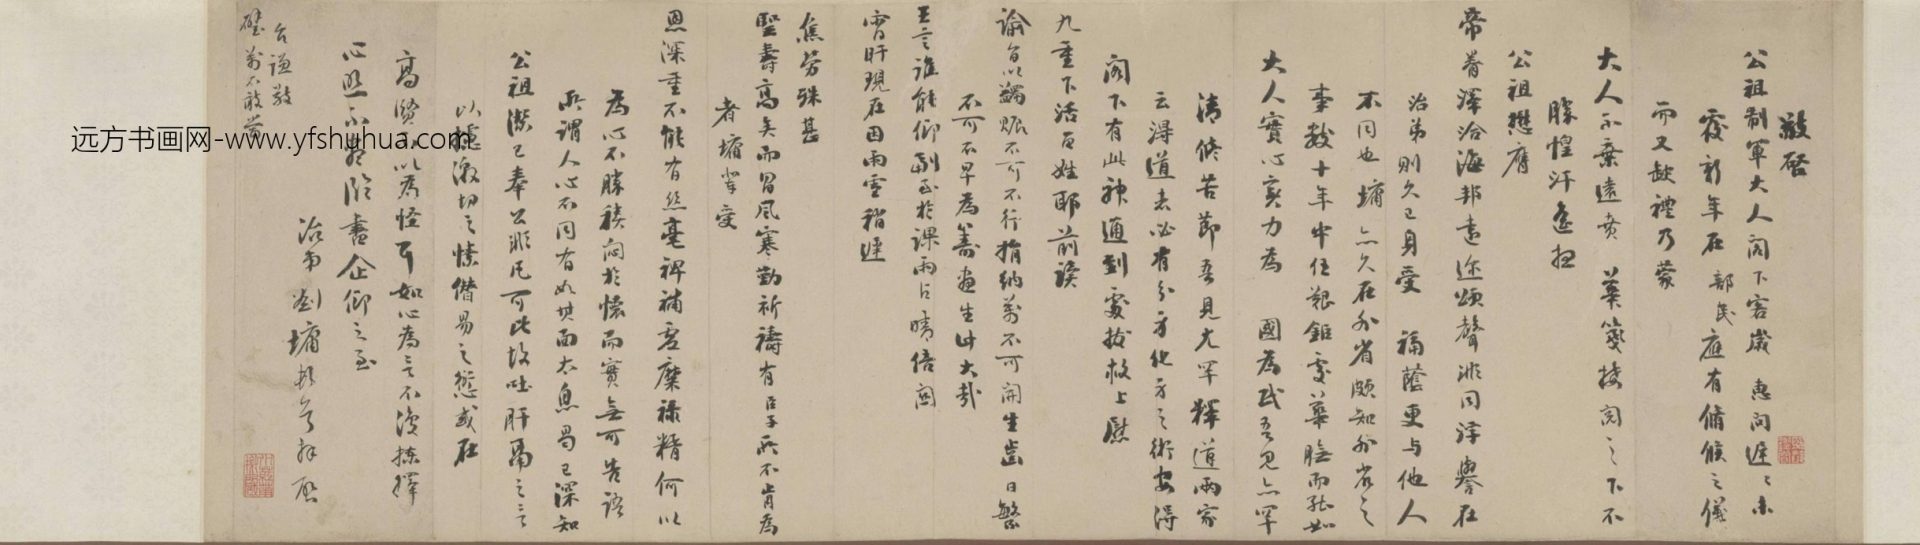 敬啓
公祖制軍大人閣下客歲 惠問遲遲未
覆新年在 部民 應有脩候之儀
而又缺禮乃蒙
大人不棄遠賁 華箋接閱之下不
勝惶汗 恭
公祖懋膺
帝眷澤洽海邦遠近頌聲 同浮譽在
治弟則久已身受 福蔭更与他人
不同也墉 亦久在外省頗知外省之
事數十年中任艱鉅 而能如
大人實心實力為 國為民吾見亦罕
清修苦節吾見尤罕釋道兩家
云得道者必有分身化身之術安得
閣下有此神通到處拔救上慰
九重下活百姓耶前讀
諭旨以蠲賑不可不行捐納萬不可開生齒日繁
不可不早為籌畫生計大哉
王言誰能仰副至於課雨占晴倍 
宵旰現在因雨雪稍遲
焦勞殊甚
聖壽高矣而冒風寒勤祈禱有臣子所不肯為
者墉輩受
恩深重不能有絲毫裨補虛糜祿精何以
為心不勝 悶於懷而實無可告語
所謂人心不同有如其面太息曷已深知
公祖潔己奉公 民可此故吐肝膈之言
以 激切之愫僭易之愆或在
高賢 以為怪耳如心為言不復揀擇
心照不 臨書企仰之至
治弟劉墉頓首拜啓
台謙敬
璧萬不敢當
远方书画网-www.yfshuhua.com